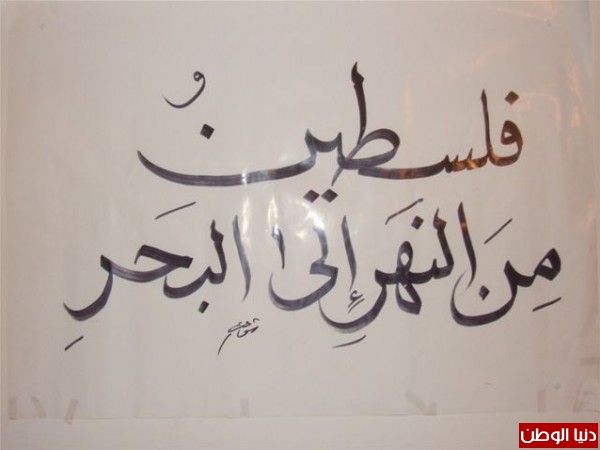 فلسطينُ
مِنَ النهَرِ إلى البحَرِ
دنيا الوطن